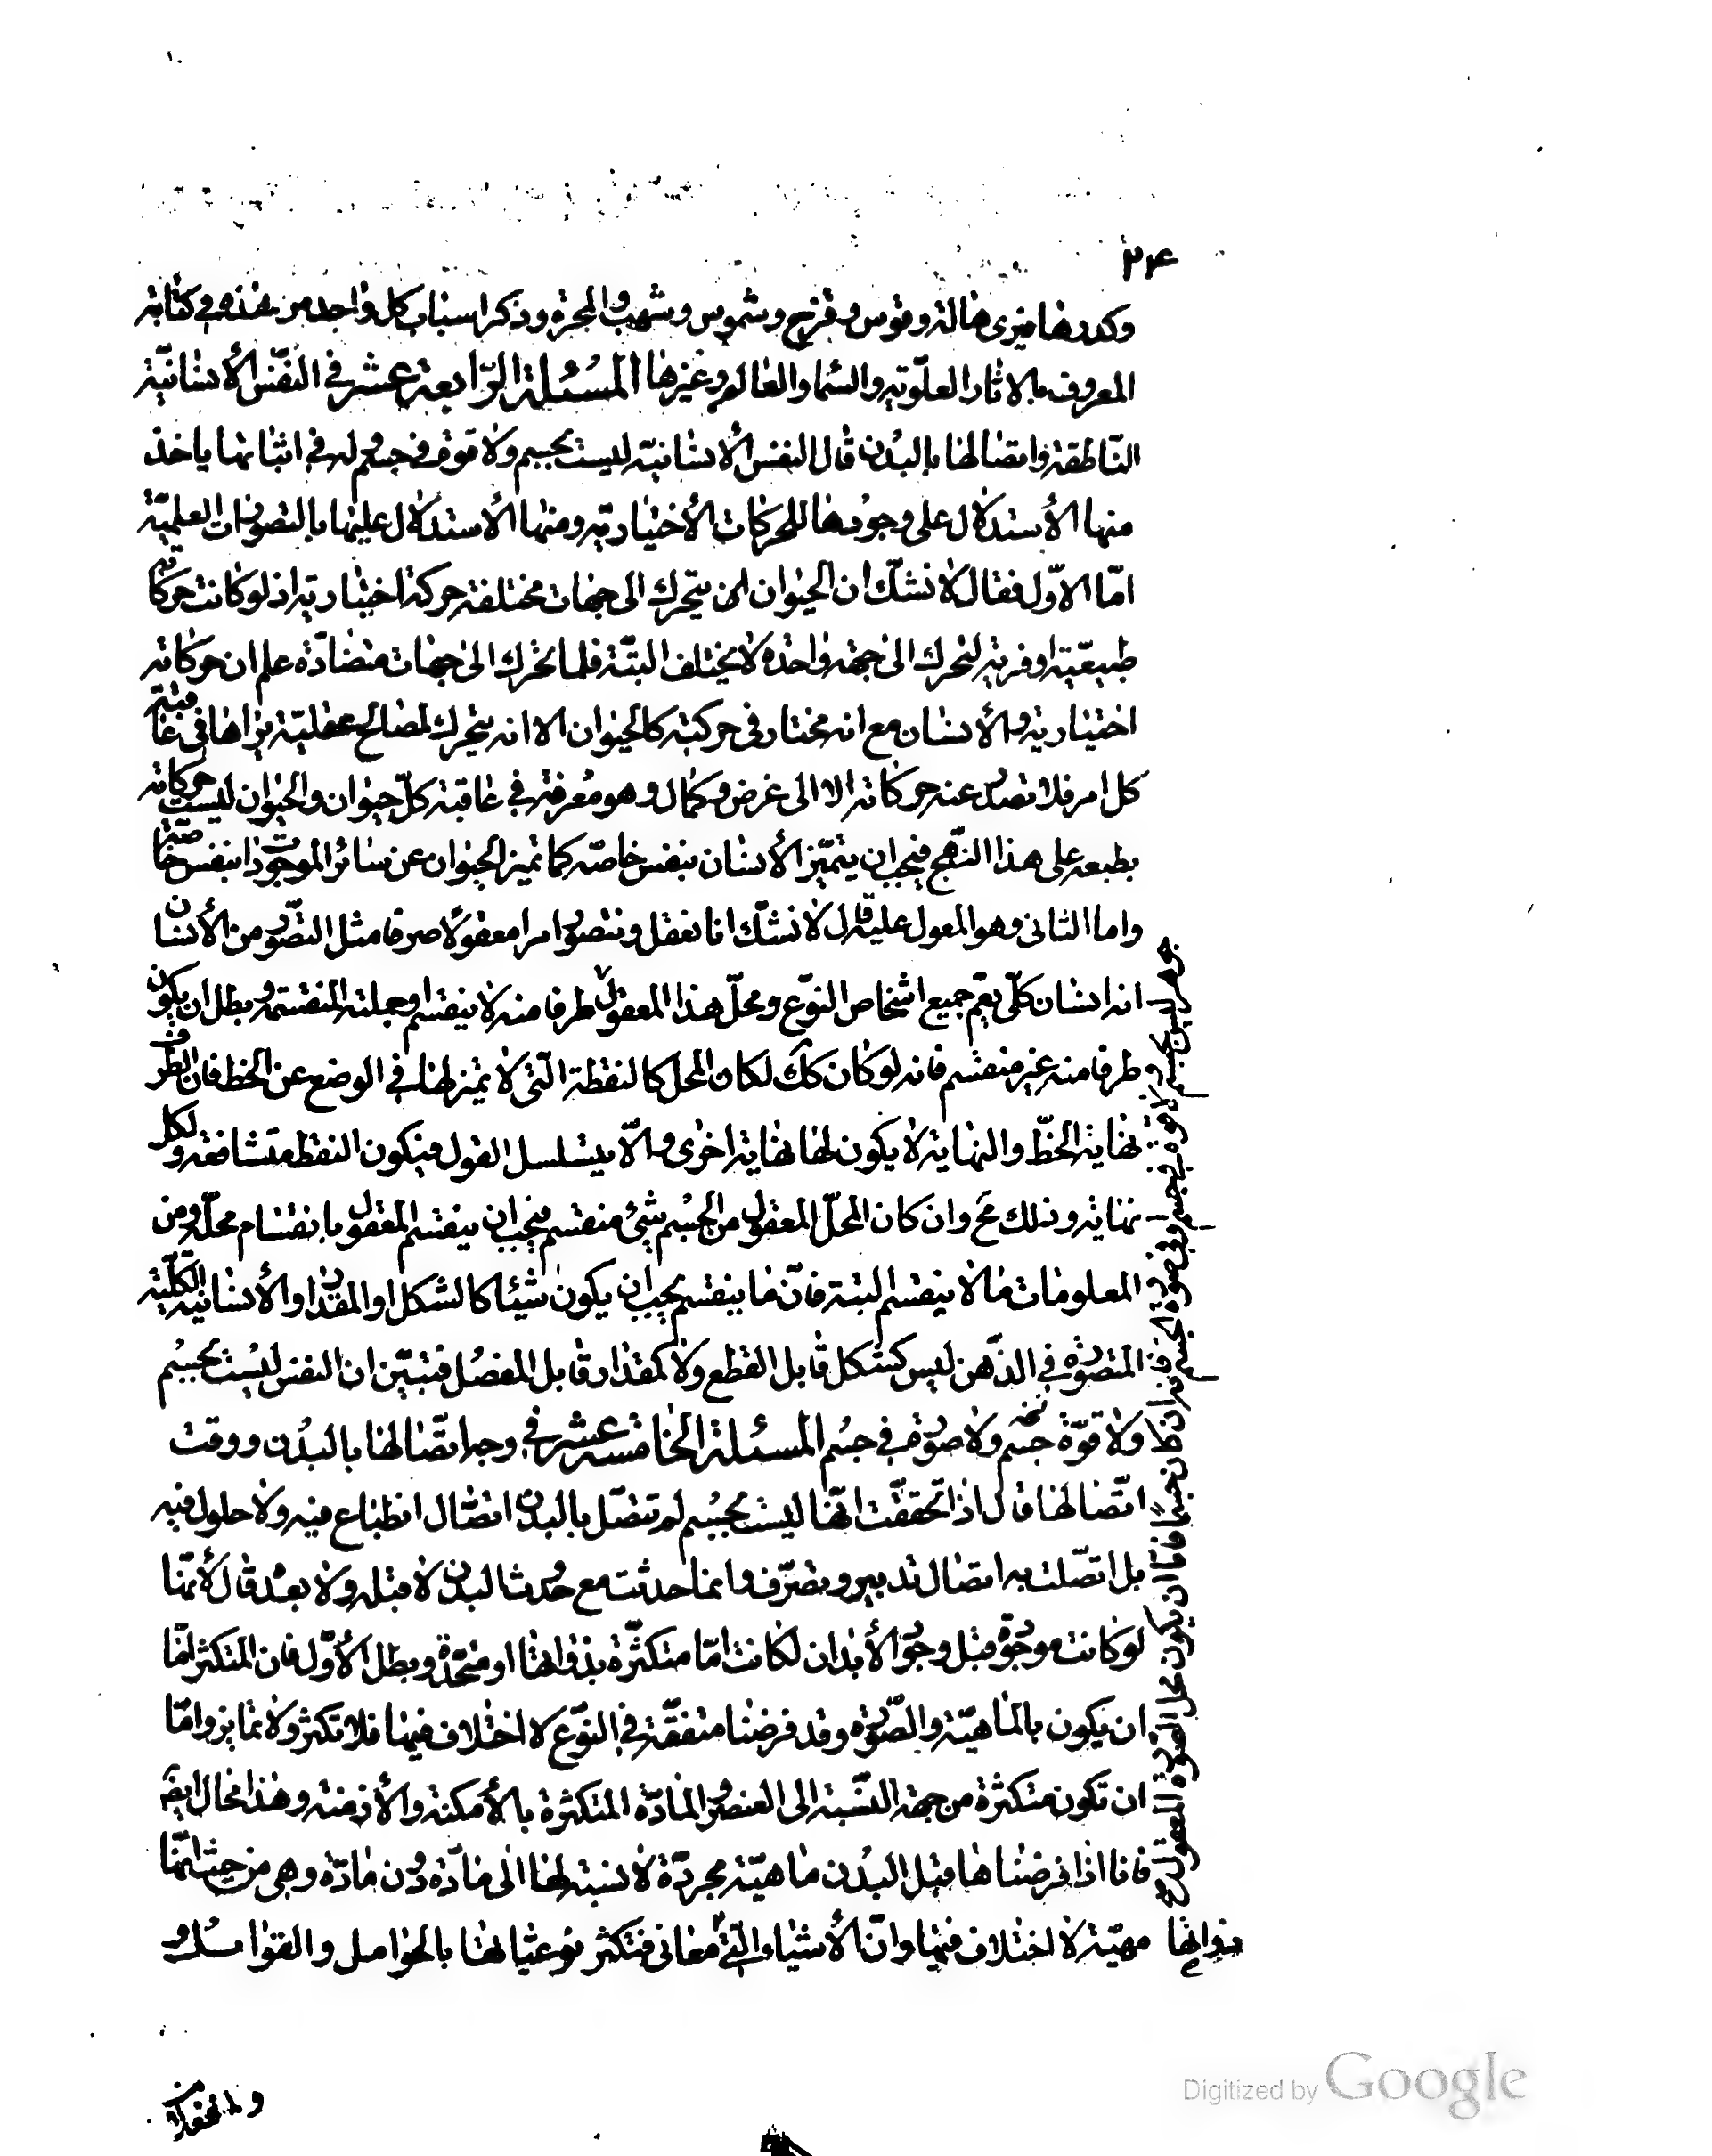 ٢٣٤
وكدرها فيرى هالة وقوس وقزح وشموس وشهب والمجرة وذكر اسباب كل واحد من هذه في كتابه
المعروف بالاثار العلوية والسماء والعالم وغيرها المسئلة الرابعة عشر في النفس الأنسانية
الناطقة واتصالها بالبدن قال النفس الأنسانية ليست بجسم ولا قوة في جسم وله في اثباتها ياخذ
منها الأستدلال على وجودها للحركات الأختيارية ومنها الأستدلال عليها بالتصورات العلمية
امّا الاوّل فقال لا نشكّ ان الحيوان يتحرك الى جهات مختلفة حركة اختيارية اذ لو كانت حركاته
طبيعيّة او قسرية لتحرك الى جهة واحدة لا يختلف البتّة فلما تحرك الى جهات متضادّة علم ان حركاته
اختيارية والأنسان مع انه مختار في حركته كالحيوان الا انه يتحرك لمصالح عقليّة يراها في عاقبته
كل امر فلا تصدر عنه حركاته الا الى غرض وكمال وهو معرفته في عاقبة كلّ حيوان والحيوان ليست حركاته
بطبعه على هذا النهج فيجب ان يتميّز الأنسان بنفس خاصّة كما تميز الحيوان عن سائر الموجودات بنفس خاصّة
واما الثانى وهو المعول عليه قال لا نشكّ انا نعقل ونتصور امرا معقولًا صرفا مثل التصّور من الأنسان
انه انسان كلّى يعم جميع اشخاص النوّع ومحلّ هذا المعقول طرفا منه لا ينقسم او جملته المنقسمة وبطل ان يكون
طرفا منه غير منقسم فانه لو كان كك لكان المحل كالنقطة التى لا تميز لها في الوضع عن الخط فان الطرف
نهاية الخطّ والنهاية لا يكون لها نهاية اخرى والّا يتسلسل القول فيكون النقط متشافعة ولكل
نهاية وذلك مح وان كان المحلّ المعقول من الجسم شئ منقسم فيجب ان ينقسم المعقول بانقسام محلّه ومن
المعلومات ما لا ينقسم البتة فانّ ما ينقسم يجب ان يكون شيئا كالشكل او المقدار والأنسانية الكلّية
المتصورة في الذّهن ليس كشكل قابل القطع ولا كمقدار قابل المفصل فتبيّن ان النفس ليست بجسم
ولا قوّة جسم ولا صورة في جسم المسئلة الخامسة عشر في وجه اتّصالها بالبدن ووقت
اتّصالها قال اذا تحققت انّها ليست بجسم لم تتصّل بالبدن اتصّال انطباع فيه ولا حلول فيه
بل اتصّلت به اتصال تدبير وتصرّف وانما حدثت مع حدوث البدن لا قبله ولا بعده قال لأنّها
لو كانت موجودة قبل وجود الأبدان لكانت امّا متكثّرة بذواتها او متحّدة وبطل الأوّل فان المتكثر امّا
ان يكون بالماهيّة والصّورة وقد فرضنا متفقّة في النوّع لا اختلاف فيها فلا تكثر ولا تمايز وامّا
ان تكون متكثّرة من جهة النّسبة الى العنصر والمادّة المتكثرة بالأمكنة والأزمنة وهذا محال ايضً
فانا اذا فرضناها قبل البدن ماهيّة مجردّة لا نسبة لها الى مادّة دون مادّة وهى من حيث انّها
مهيّة لا اختلاف فيها وانّ الأشياء التى معانى فتكثر نوعياتها بالحوامل والقوابل و
بذواتها
جوهر ليس بجسم ولا قوة في جسم وفى صورة الجسم
ان يكون محل الصورة المعقولة